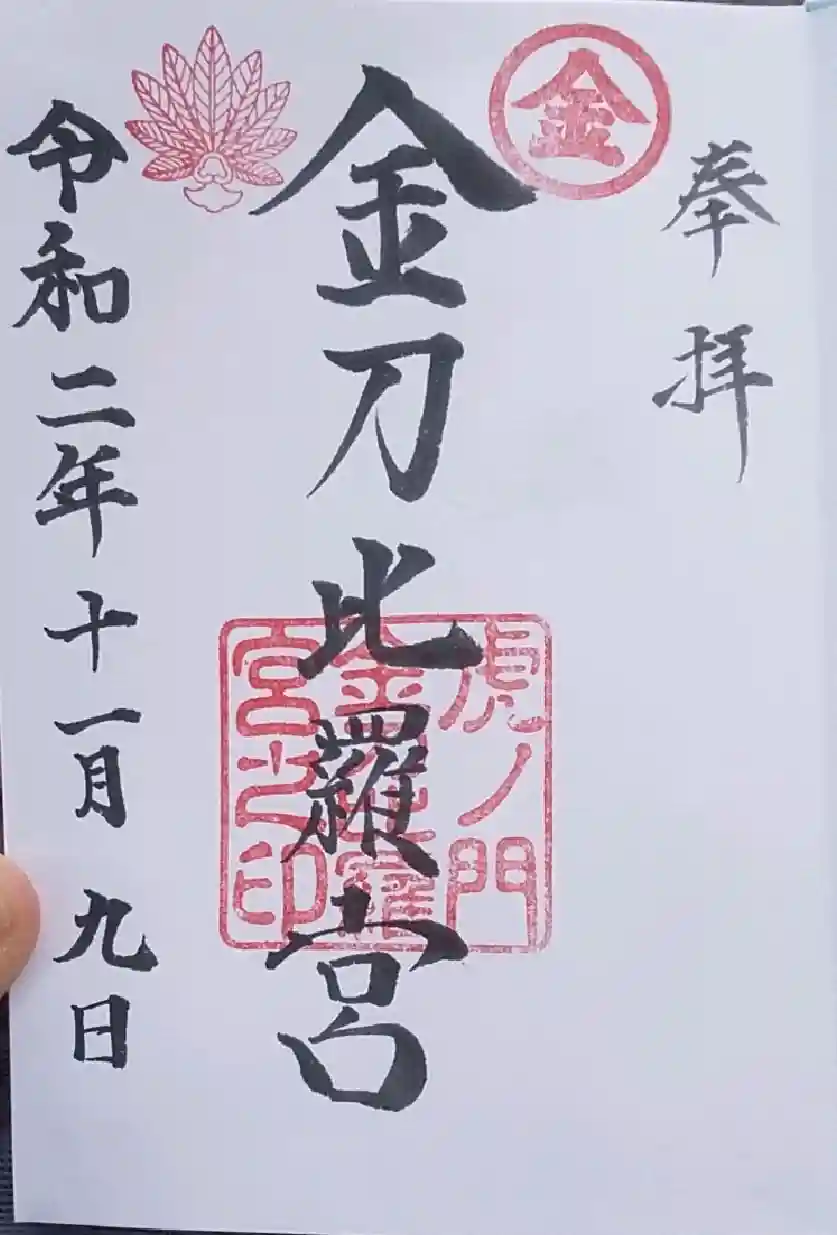 奉拝
金
金刀比羅宮
虎ノ門
金毘羅
宮之印
令和二年十一月九日